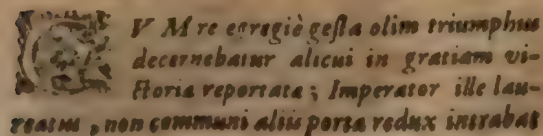 CVM re egregiè gesta olim triumphus
decernebatur alicui in gratiam vi-
ctoriæ reportatæ; Imperator ille lau-
reatus, non communi aliis porta redux intrabat